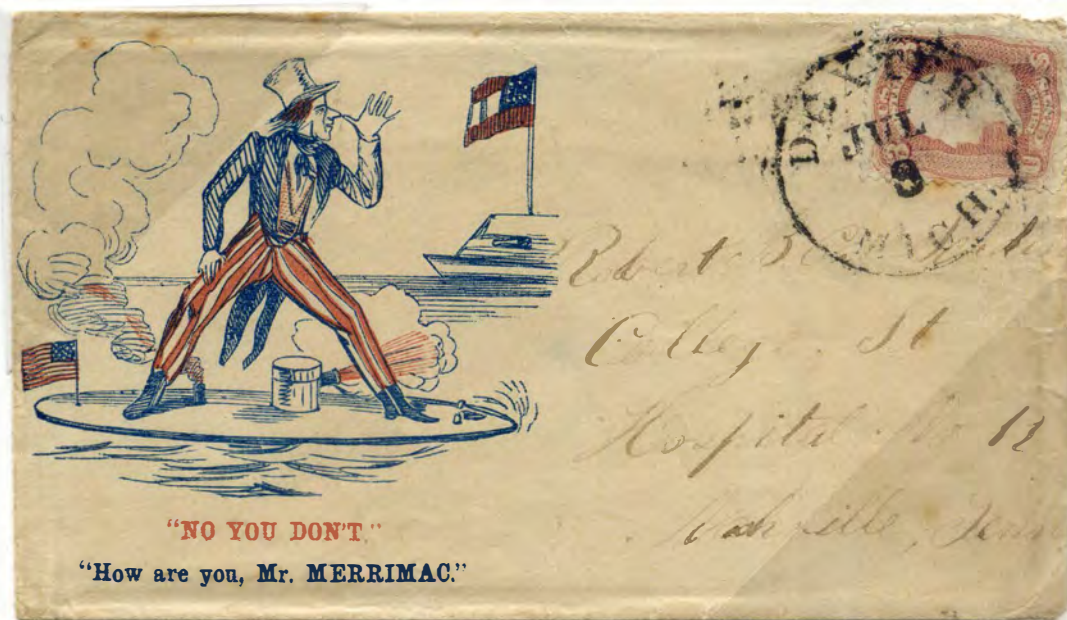 DEXTER
JUL
8
MICH.
Robert B
College St
Hospital No 12
Nashville, Tenn
“NO YOU DON'T.”
“How are you, Mr. MERRIMAC.”